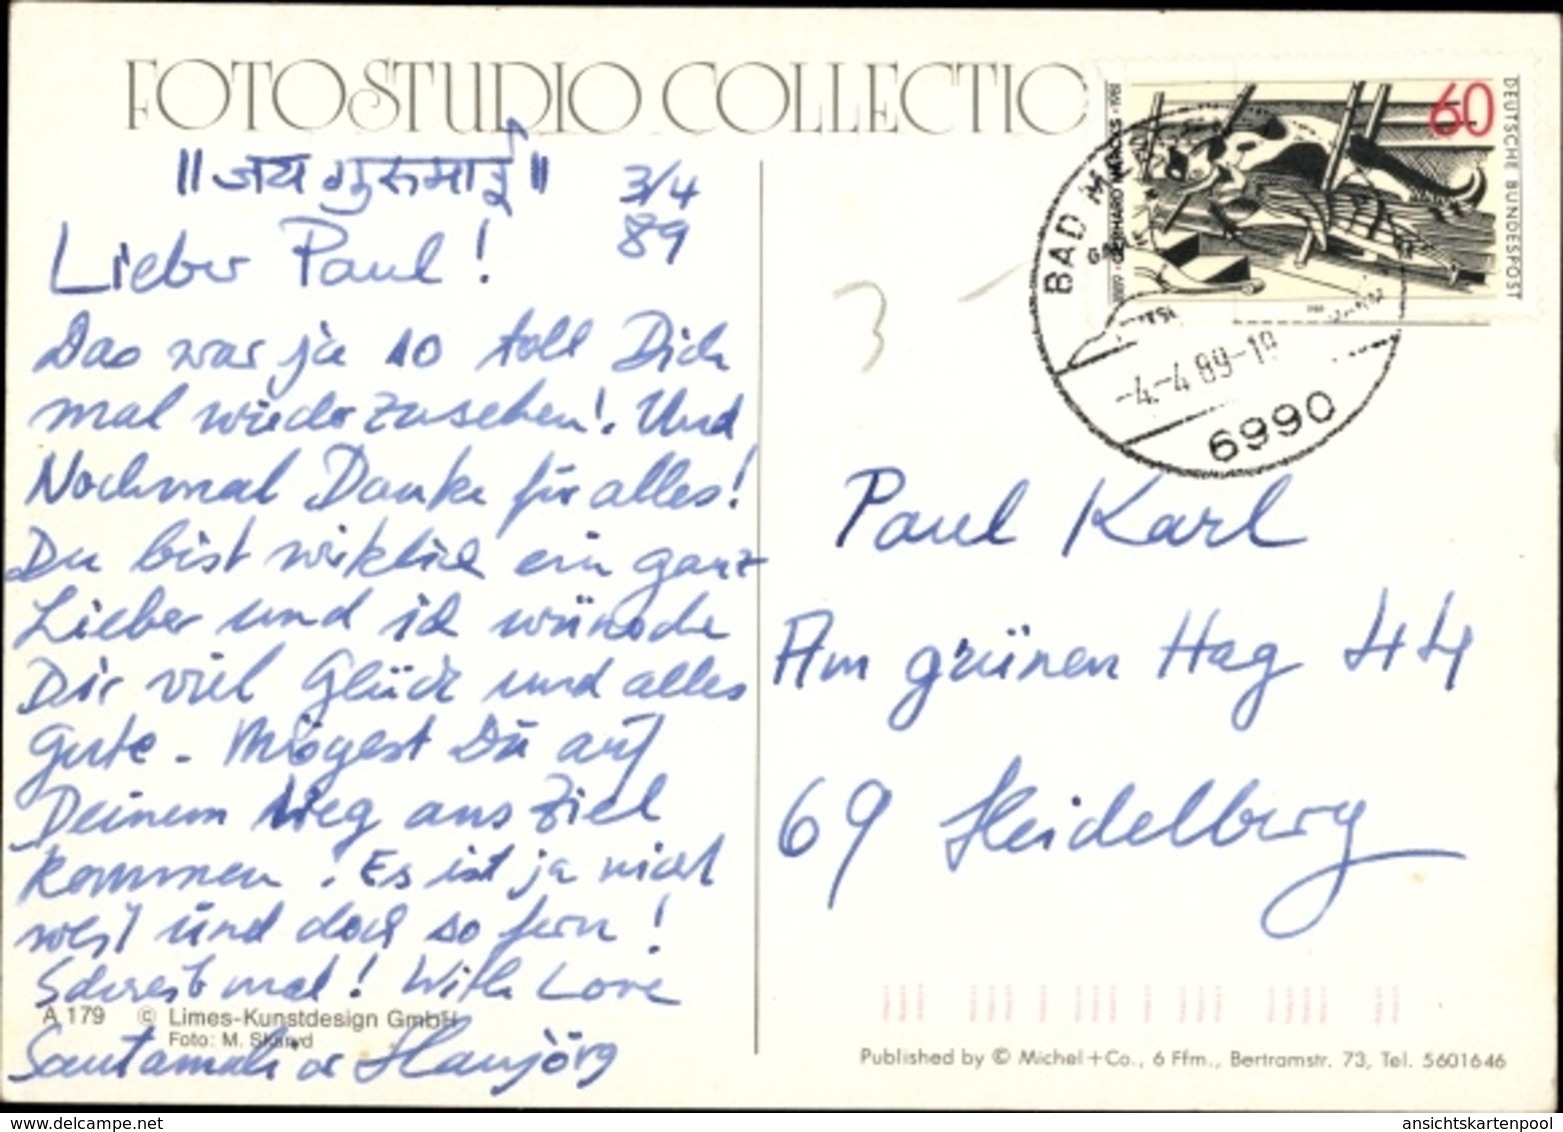 FOTOSTUDIO COLLECTIO
॥ जय गुरुमाई ॥
3/4
89
Lieber Paul!
Das war ja so toll Dich
mal wiederzusehen! Und
Nochmal Danke für alles!
Du bist wirklich ein ganz
Lieber und ich wünsche
Dir viel Glück und alles
Gute - Mögest Du auf
Deinem Weg ans Ziel
kommen! Es ist ja nicht
weit und doch so fern!
Schreib mal! With Love
A 179 © Limes-Kunstdesign GmbH
Foto: M.
Hansjörg
60
DEUTSCHE BUNDESPOST
GERHARD MARCKS
1889
1981
BAD
-4.-4.89-18
6990
Paul Karl
Am grünen Hag 44
69 Heidelberg
Published by © Michel+Co., 6 Ffm., Bertramstr. 73, Tel. 5601646
ansichtskartenpool